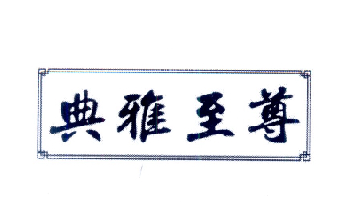 典雅至尊